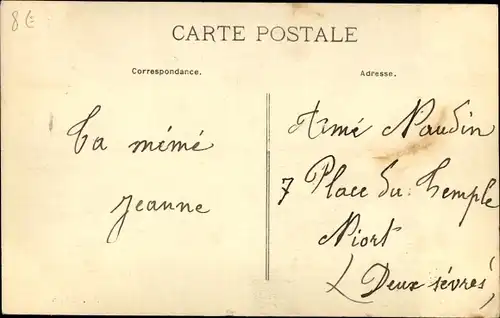 8€
CARTE POSTALE
Correspondance.
Ta mémé
Jeanne
Adresse.
Aimé Naudin
7 Place du Temple
Niort
(Deux sévres)